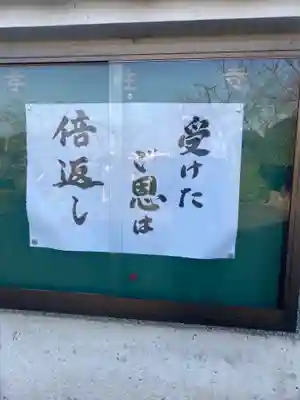 受けた
ご恩は
倍返し